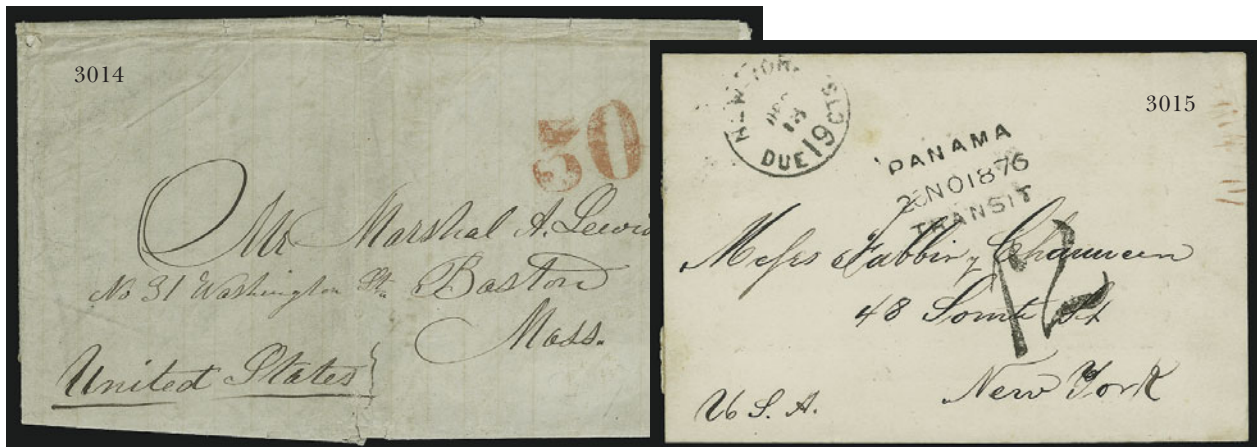 3014
30
Mr Marshal A. Lewis
No 31 Washington St.
Boston
Mass.
United States
3015
NEW YORK
DEC
18
DUE 19 CTS
PANAMA
NO 1876
TRANSIT
12
Messrs Fabbri y Chauncen
48 South St
New York
U.S.A.